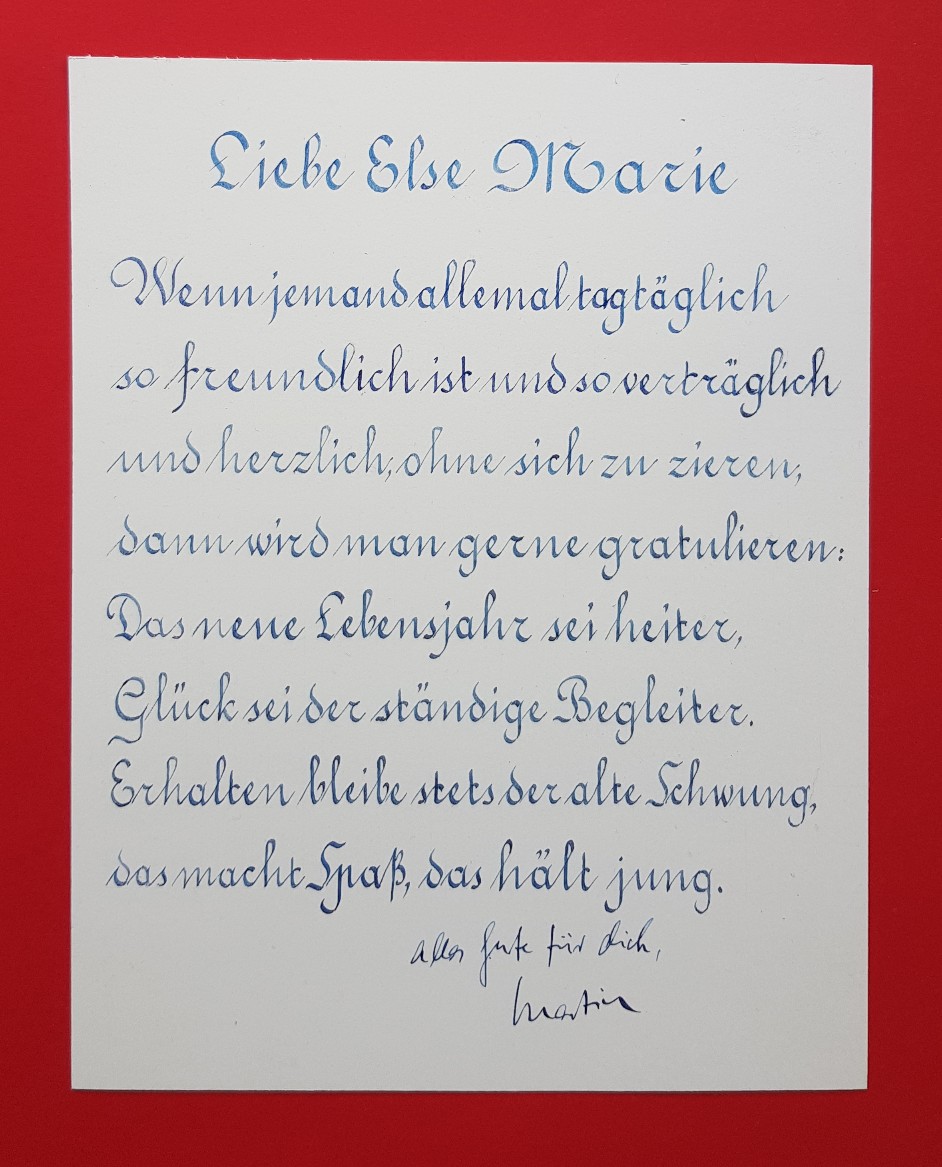 Liebe Else Marie
Wenn jemand allemal tagtäglich
so freundlich ist und so verträglich
und herzlich, ohne sich zu zieren,
dann wird man gerne gratulieren:
Das neue Lebensjahr sei heiter,
Glück sei der ständige Begleiter.
Erhalten bleibe stets der alte Schwung,
das macht Spaß, das hält jung.
alles Gute für Dich,
Martin